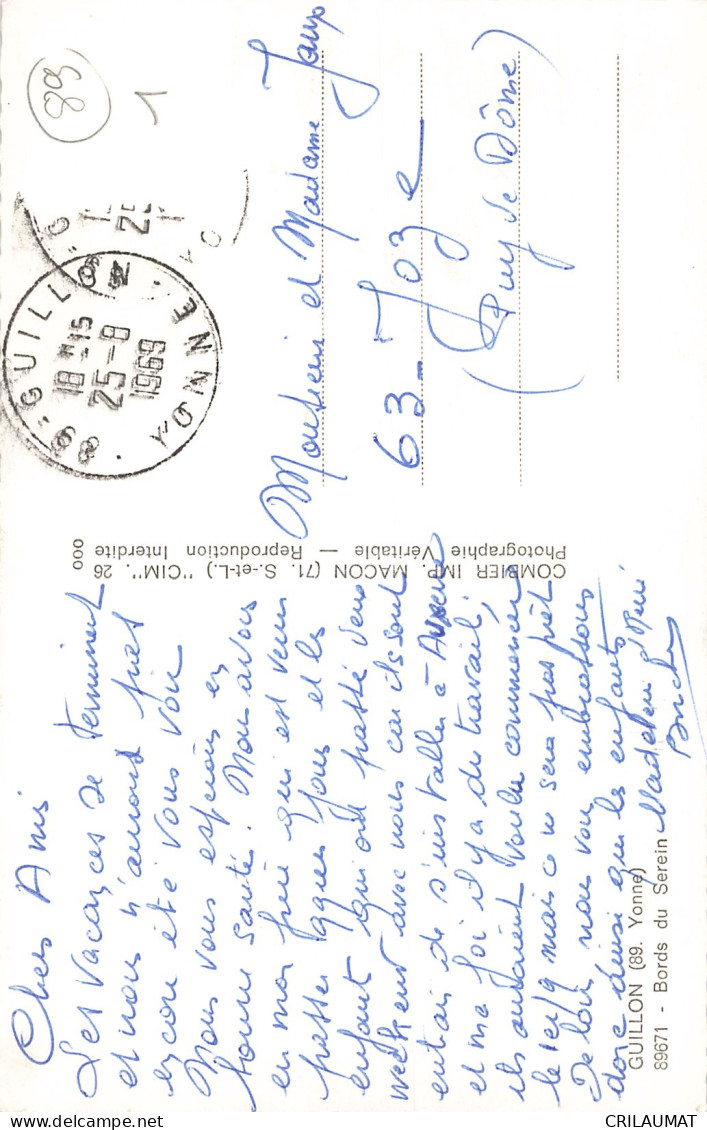 Chers Amis
Les vacances se terminent
et nous n'aurons pas
encore été vous voir
Nous vous espérons en
bonne santé. Nous avons
eu mon frère qui est venu
passer qques jours et les
enfants qui ont passé deux
week end avec nous car ils sont
en train de s'installer à Auxerre
et ma foi il y a du travail,
ils auraient voulu commencer
le 1er 9 mais ce ne sera pas prêt
De loin nous vous embrassons
donc ainsi que les enfants
Madeleine René
GUILLON (89. Yonne)
89671 - Bords du Serein
COMBIER IMP. MACON (71. S.-et-L.) "CIM". 26
Photographie Véritable — Reproduction Interdite
000
Monsieur et Madame Jaup
63 - Joze
(Puy de Dôme)
89 - GUILLON
YONNE
18 H 15
25 - 8
1969
89
1
CRILAUMAT